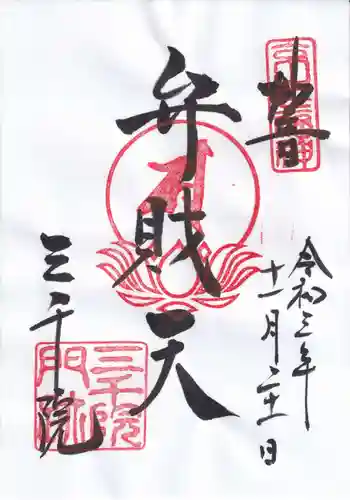 奉拝
令和三年
十一月二十一日
弁財天
三千院
三千院
門跡